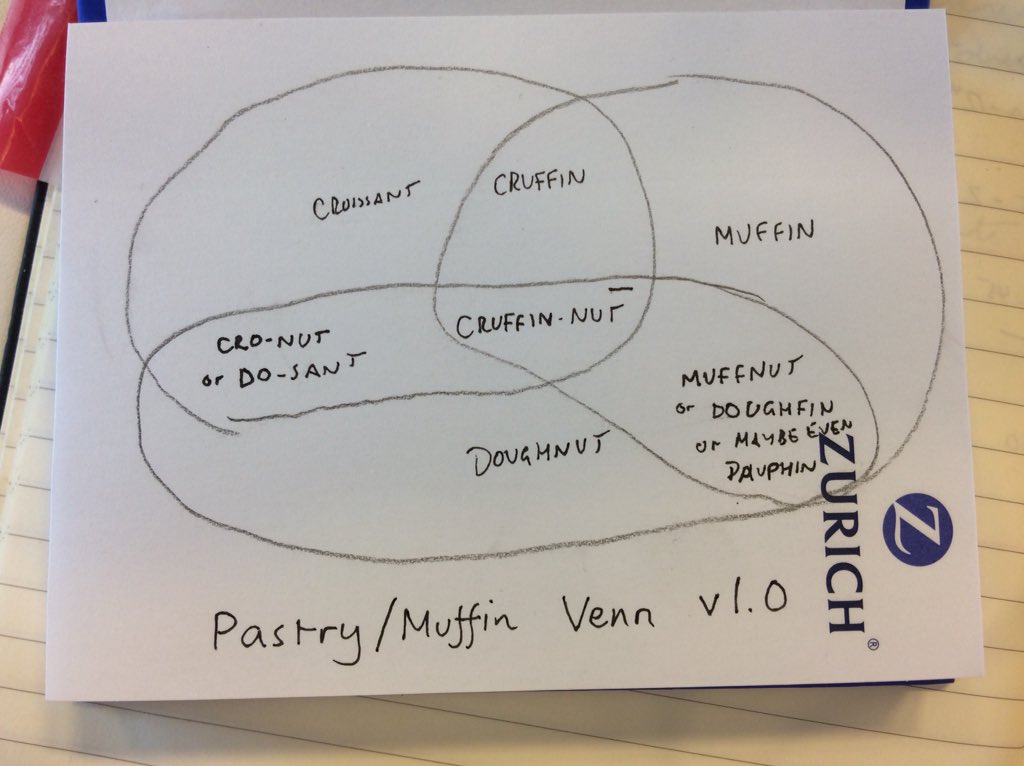 CRUFFIN
CROISSANT
MUFFIN
CRUFFIN-NUT
CRO-NUT
or DO-SANT
MUFFNUT
or DOUGHFIN
or MAYBE EVEN
DAUPHIN
DOUGHNUT
ZURICH®
Z
Pastry/Muffin Venn v1.0